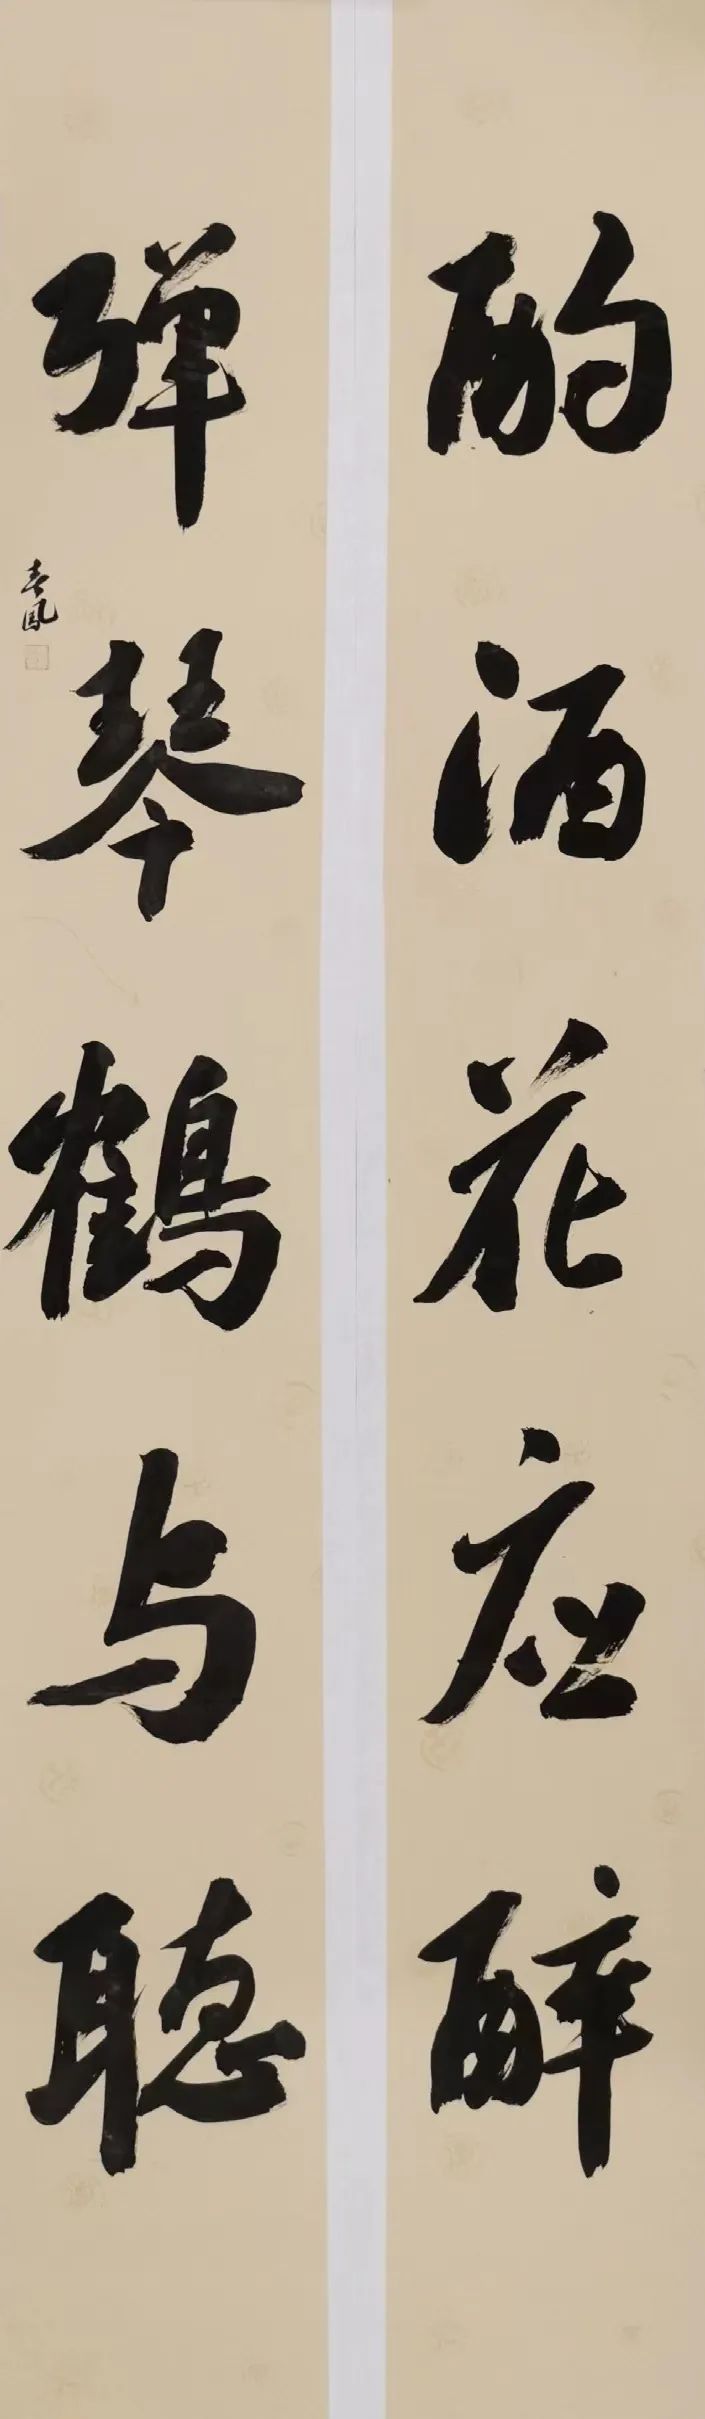 酌酒花应醉
弹琴鹤与聪
春凤